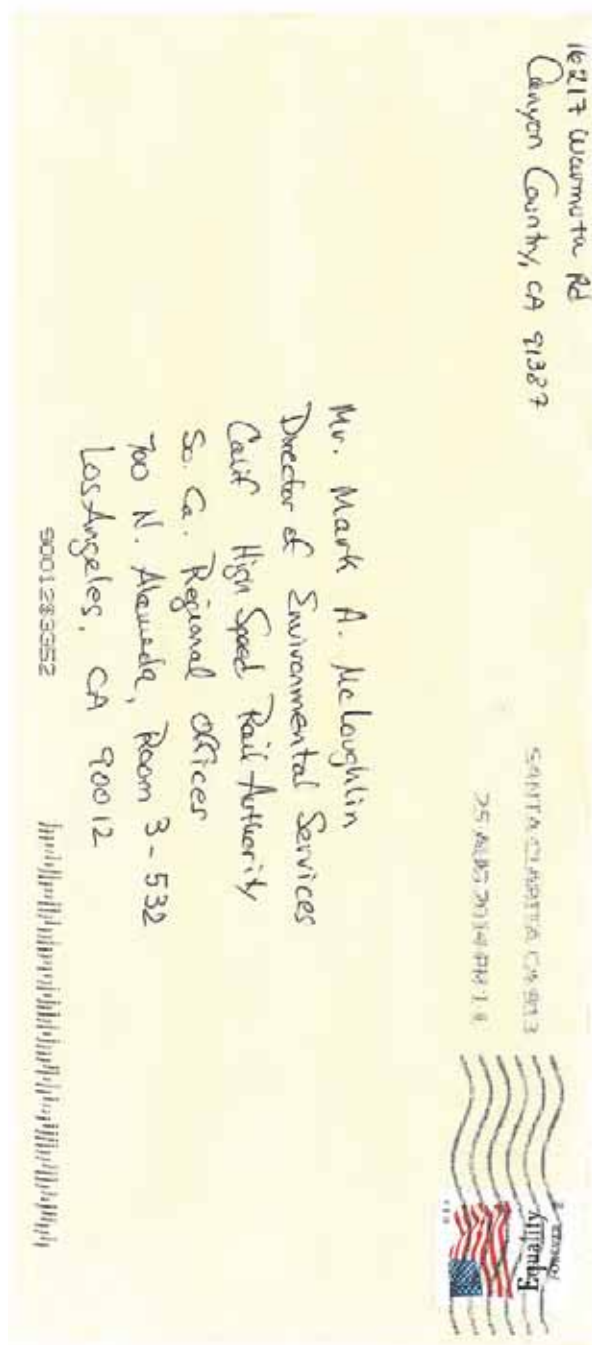 16217 Warmuth Rd
Canyon Country, CA 91387
SANTA CLARITA CA 913
25 AUG 2014 PM 1 L
FOREVER
Equality
Mr. Mark A. McLoughlin
Director of Environmental Services
Calif High Speed Rail Authority
So. Ca. Regional Offices
700 N. Alameda, Room 3-532
Los Angeles, CA 90012
90012$3352